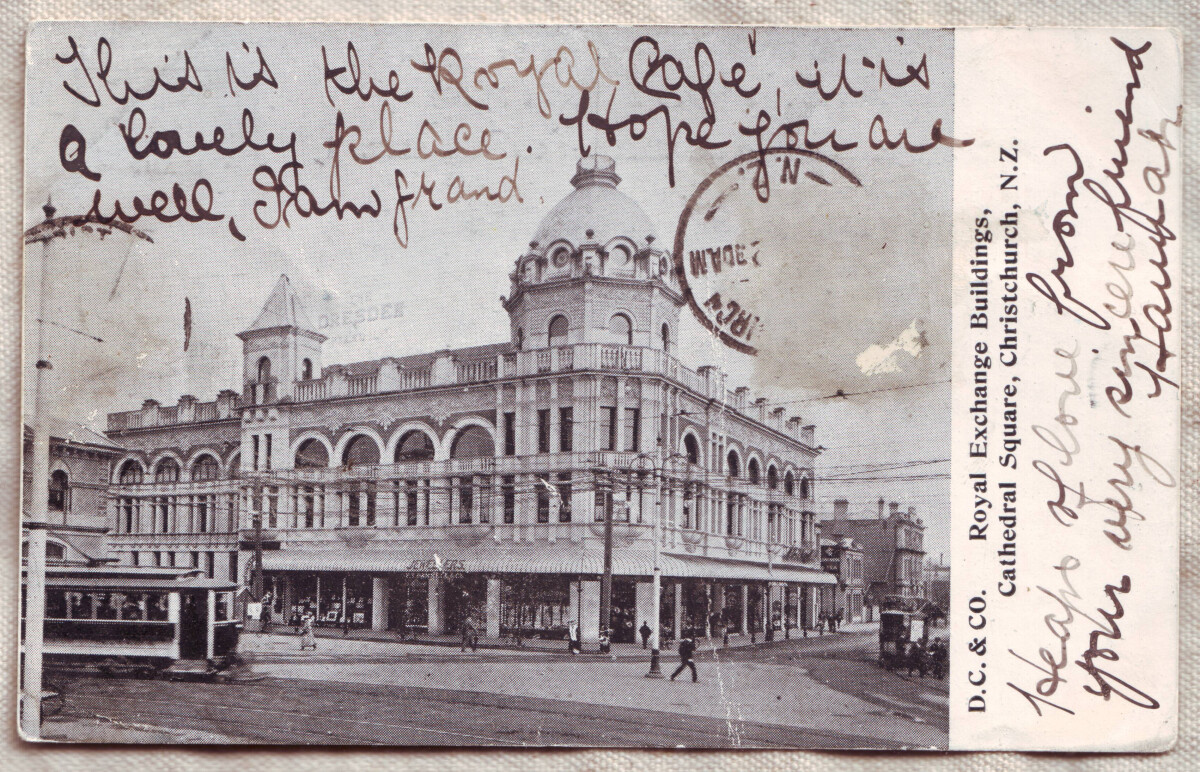 This is the Royal Café, it is
a lovely place. Hope you are
well, I am grand.
N.Z.
30AM
JEWELLERS
DRESDEN
D.C. & CO. Royal Exchange Buildings,
Cathedral Square, Christchurch, N.Z.
Heaps of love from
your very sincere friend
Hannah